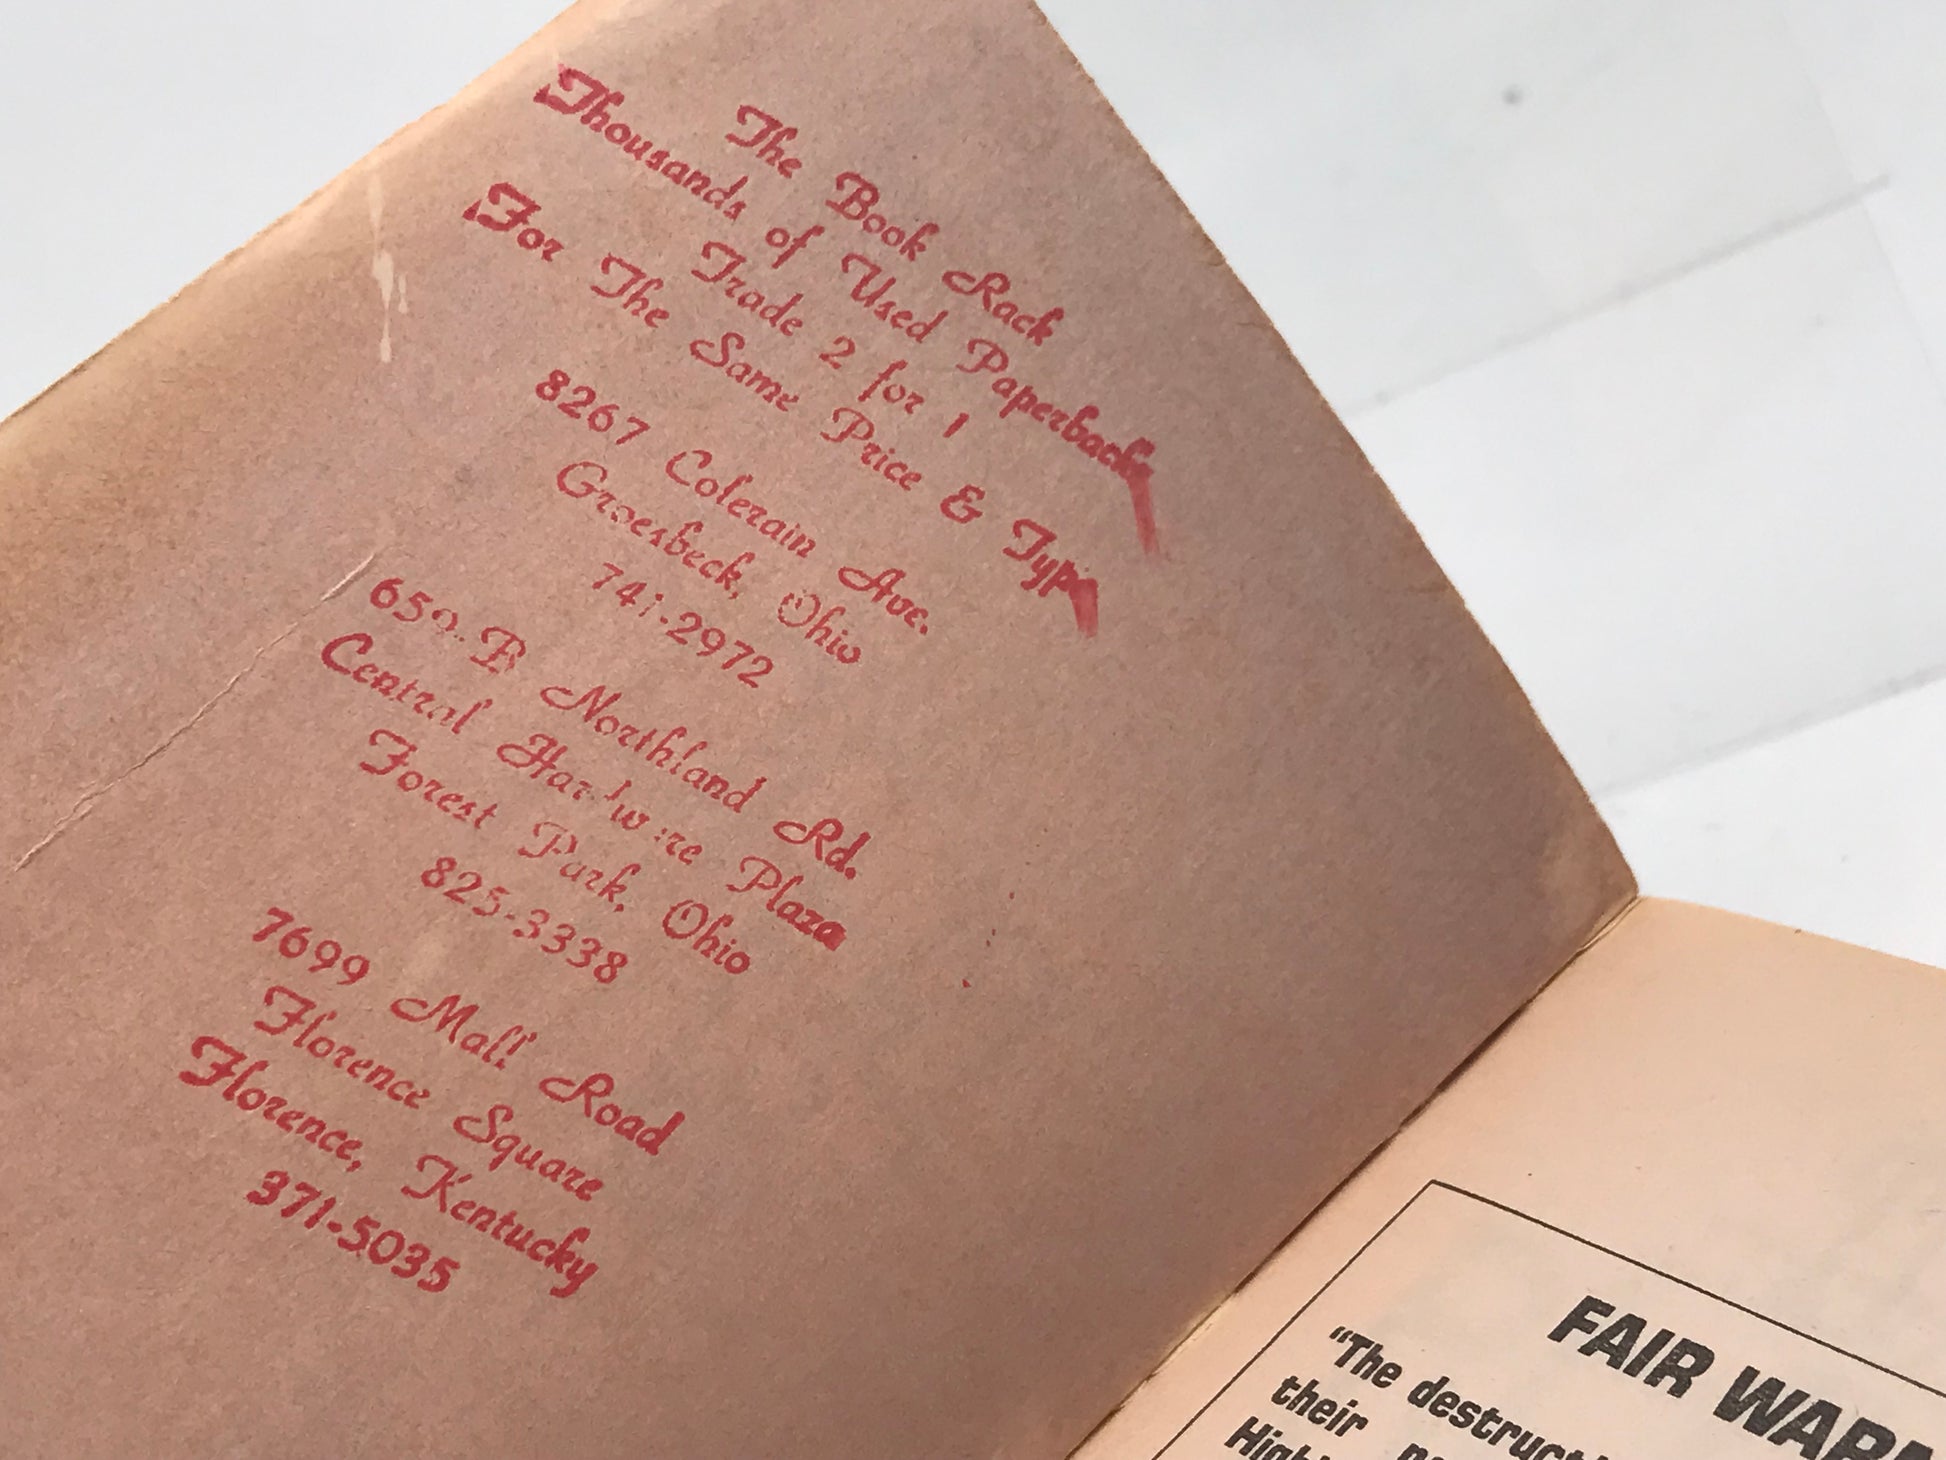 The Book Rack
Thousands of Used Paperbacks
Trade 2 for 1
For The Same Price & Type
8267 Colerain Ave.
Groesbeck, Ohio
741-2972
B Northland Rd.
Central Hardware Plaza
Forest Park, Ohio
825-3338
7699 Mall Road
Florence Square
Florence, Kentucky
371-5035
FAIR
"The
their